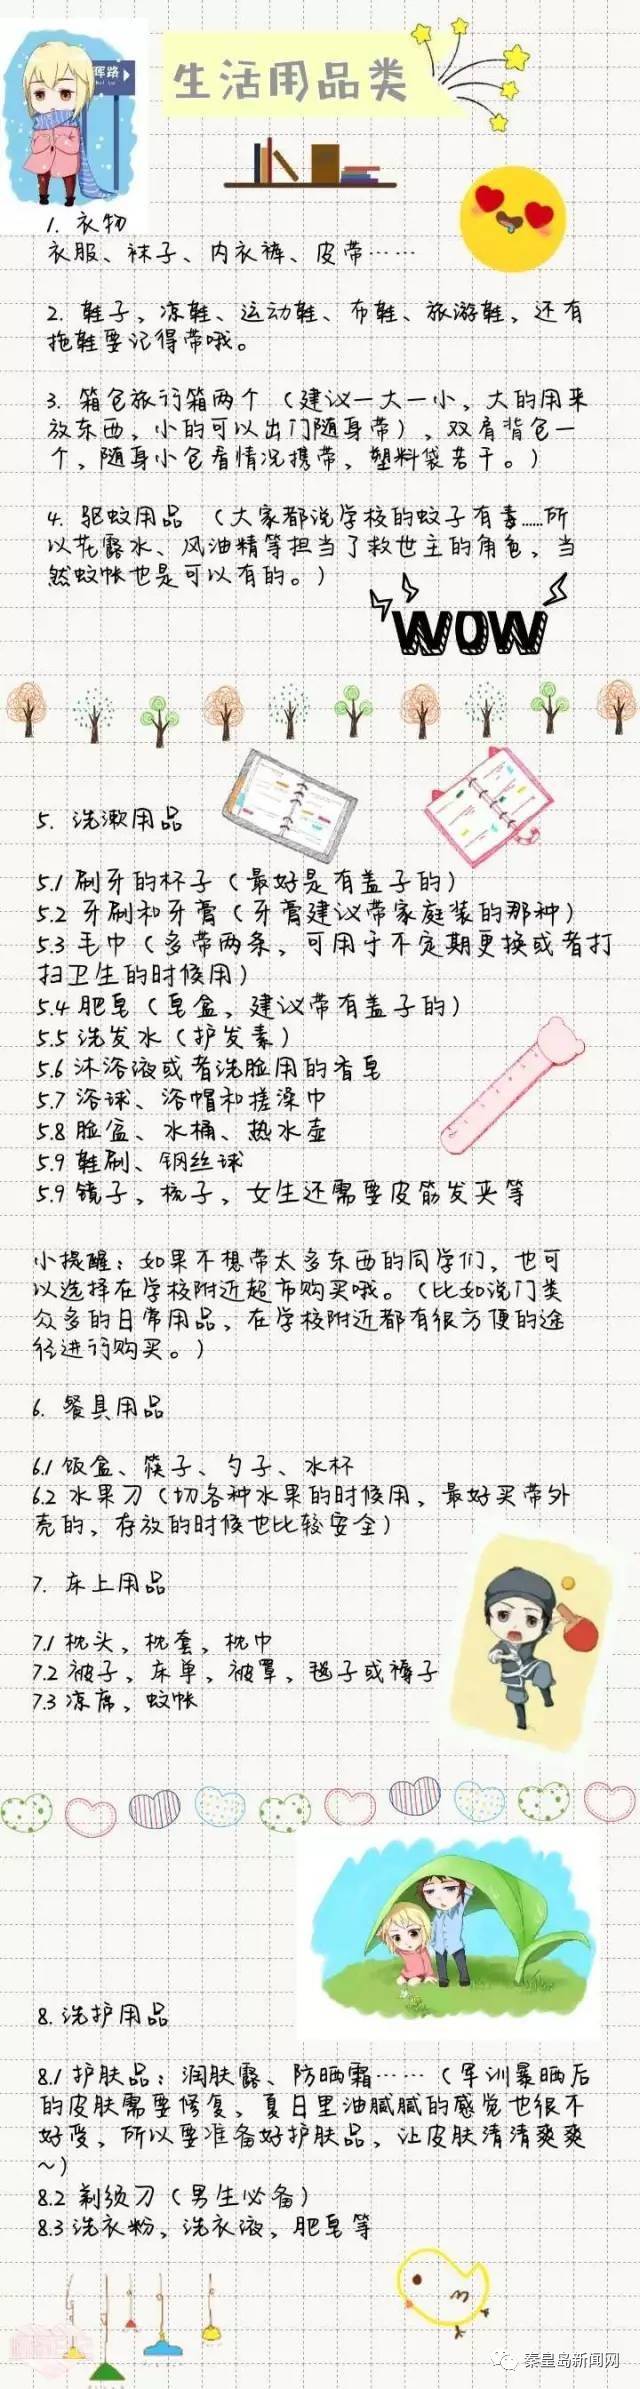 晖路
生活用品类
1. 衣物
衣服、袜子、内衣裤、皮带……
2. 鞋子，凉鞋、运动鞋、布鞋、旅游鞋，还有
拖鞋要记得带哦。
3. 箱包旅行箱两个（建议一大一小，大的用来
放东西，小的可以出门随身带），双肩背包一
个，随身小包看情况携带，塑料袋若干。）
4. 驱蚊用品 （大家都说学校的蚊子有毒……所
以花露水、风油精等担当了救世主的角色，当
然蚊帐也是可以有的。）
WOW
5. 洗漱用品
5.1 刷牙的杯子（最好是有盖子的）
5.2 牙刷和牙膏（牙膏建议带家庭装的那种）
5.3 毛巾（多带两条，可用于不定期更换或者打
扫卫生的时候用）
5.4 肥皂（皂盒，建议带有盖子的）
5.5 洗发水（护发素）
5.6 沐浴液或者洗脸用的香皂
5.7 浴球、浴帽和搓澡巾
5.8 脸盆、水桶、热水壶
5.9 鞋刷、钢丝球
5.9 镜子，梳子，女生还需要皮筋发夹等
小提醒：如果不想带太多东西的同学们，也可
以选择在学校附近超市购买哦。（比如说门类
众多的日常用品，在学校附近都有很方便的途
径进行购买。）
6. 餐具用品
6.1 饭盒、筷子、勺子、水杯
6.2 水果刀（切各种水果的时候用，最好买带外
壳的，存放的时候也比较安全）
7. 床上用品
7.1 枕头，枕套，枕巾
7.2 被子，床单，被罩，毯子或褥子
7.3 凉席，蚊帐
8. 洗护用品
8.1 护肤品：润肤露、防晒霜……（军训暴晒后
的皮肤需要修复，夏日里油腻腻的感觉也很不
好受，所以要准备好护肤品，让皮肤清清爽爽
~）
8.2 剃须刀（男生必备）
8.3 洗衣粉，洗衣液，肥皂等
秦皇岛新闻网